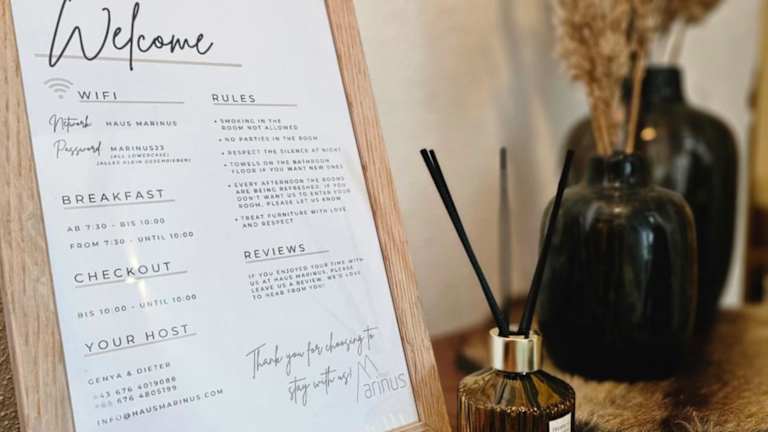 Welcome
WIFI
Network HAUS MARINUS
Password MARINUS23
(ALL LOWERCASE)
(ALLES KLEIN GESCHRIEBEN)
BREAKFAST
AB 7:30 - BIS 10:00
FROM 7:30 - UNTIL 10:00
CHECKOUT
BIS 10:00 - UNTIL 10:00
YOUR HOST
GENYA & DIETER
+43 676 4019086
676 4805199
INFO@HAUSMARINUS.COM
RULES
• SMOKING IN THE
ROOM NOT ALLOWED
• NO PARTIES IN THE ROOM
• RESPECT THE SILENCE AT NIGHT
• TOWELS ON THE BATHROOM
FLOOR IF YOU WANT NEW ONES
• EVERY AFTERNOON THE ROOMS
ARE BEING REFRESHED. IF YOU
DON'T WANT US TO ENTER YOUR
ROOM, PLEASE LET US KNOW
• TREAT FURNITURE WITH LOVE
AND RESPECT
REVIEWS
IF YOU ENJOYED YOUR TIME WITH
US AT HAUS MARINUS, PLEASE
LEAVE US A REVIEW, WE'D LOVE
TO HEAR FROM YOU!
Thank you for choosing to
stay with us!
Marinus